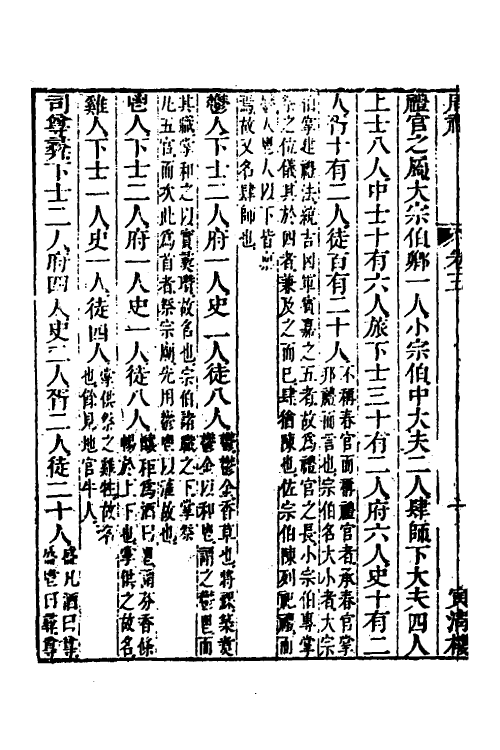 周禮 卷三 十
禮官之屬大宗伯卿一人小宗伯中大夫二人肆師下大夫四人
上士八人中士十有六人旅下士三十有二人府六人史十有二
人胥十有二人徒百有二十人不稱春官而稱禮官者承春官掌
邦禮而言也宗伯名大小者大宗
伯掌建禮法統吉凶軍賓嘉之五者故爲禮官之長小宗伯專掌
祭之位儀其於四者兼及之而已肆猶陳也佐宗伯陳列祀禮而
人鬯人以下皆
焉故又名肆師也
鬱人下士二人府一人史一人徒八人鬱鬱金香草也將祼築煑
鬱金以和鬯謂之鬱鬯而
其職掌和之以實彝瓚故名也宗伯諸職之下掌祭
凡五官而次此爲首者祭宗廟先用鬱鬯以灌故也
鬯人下士二人府一人史一人徒八人釀秬爲酒曰鬯謂芬香條
暢於上下也掌供之故名
雞人下士一人史一人徒四人掌供祭之雞牲故名
也餘見地官牛人
司尊彝下士二人府四人史二人胥二人徒二十人盛凡酒曰尊
盛鬯曰彝尊